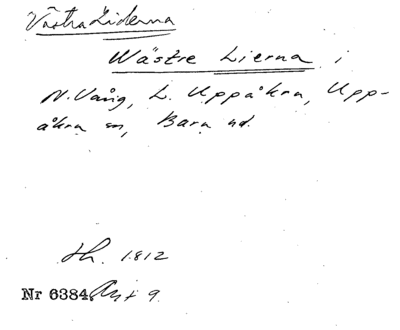 Västra Liderna
Wästre Lierna i
N. Vång, L. Uppåkra, Upp-
åkra sn, Bara hd.
1812
Nr 6384. 9.